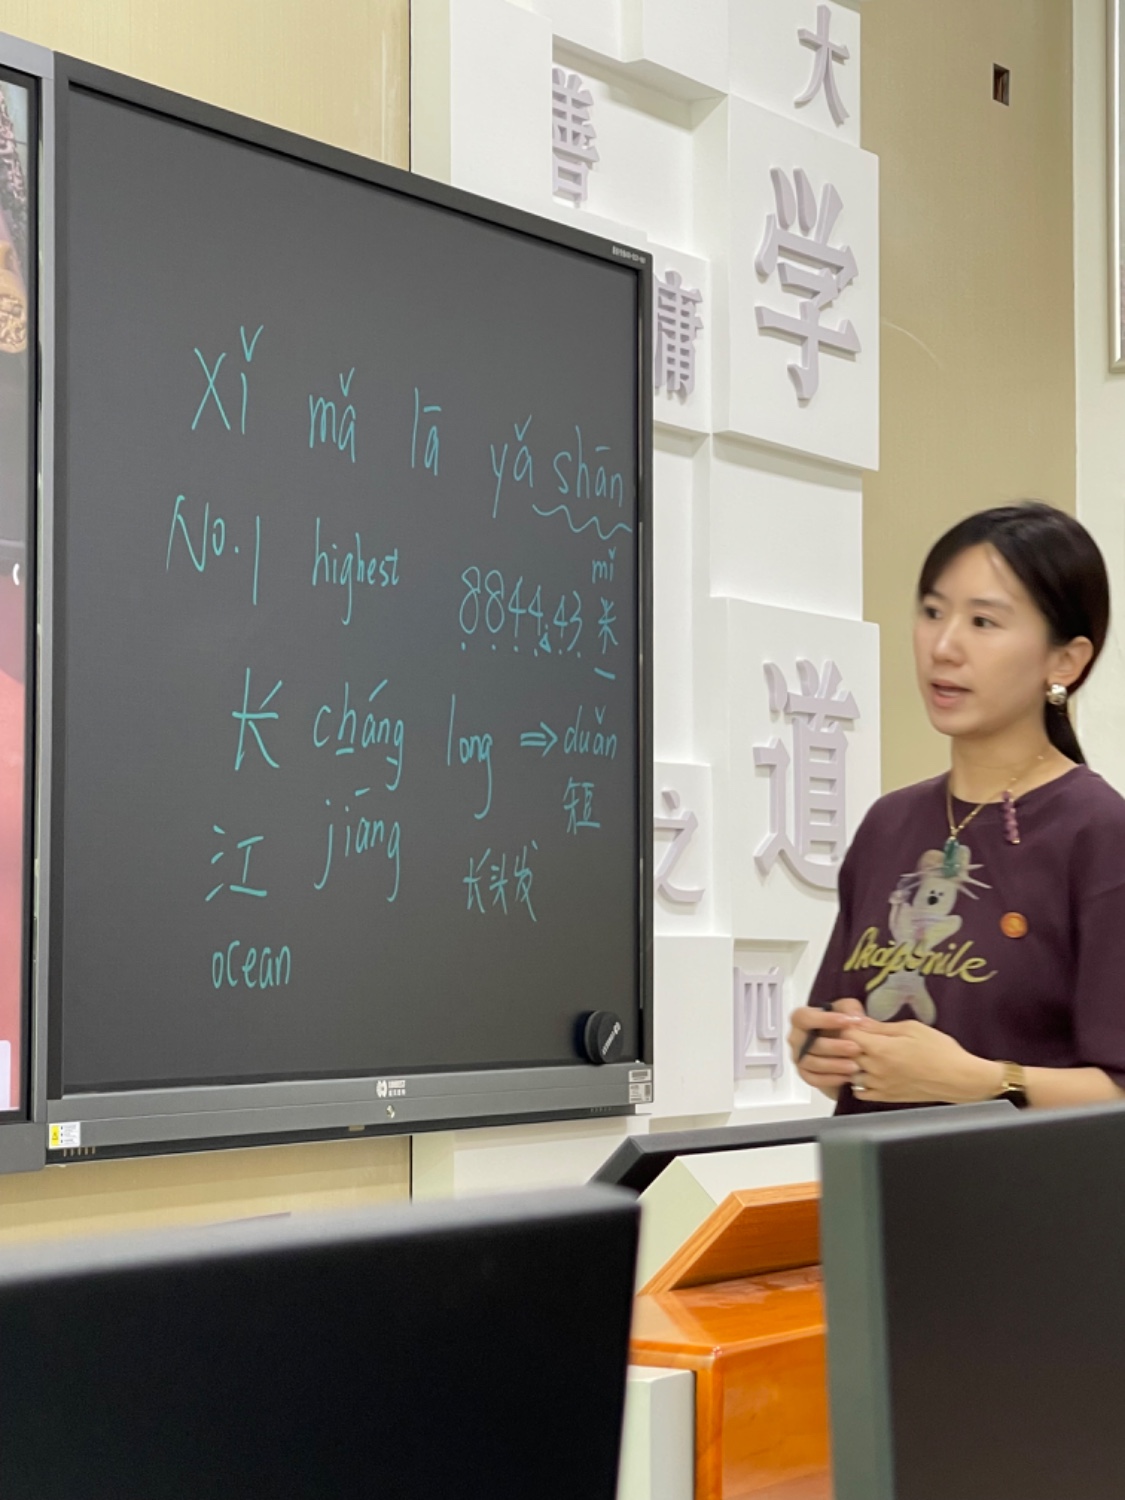 Xǐ mǎ lā yǎ shān
No.1 highest 8844.43 米
mǐ
长 cháng long ⇒ duǎn
短
江 jiāng
长头发
ocean
大
学
道
善
庸
之
四